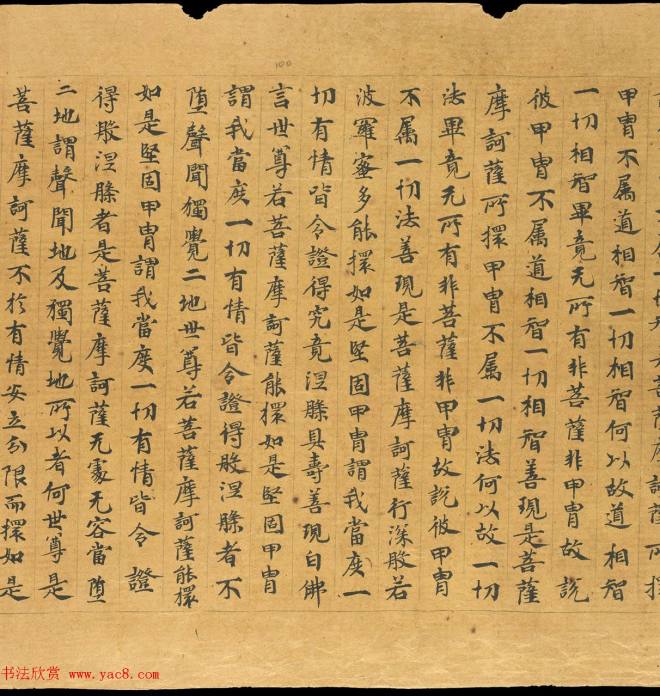 甲冑不属道相智一切相智何以故道相智
一切相智畢竟无所有非菩薩非甲冑故說
彼甲冑不属道相智一切相智善現是菩薩
摩訶薩所擐甲冑不属一切法何以故一切
法畢竟无所有非菩薩非甲冑故說彼甲冑
不属一切法善現是菩薩摩訶薩行深般若
波羅蜜多能擐如是堅固甲冑謂我當度一
切有情皆令證得究竟涅槃具壽善現白佛
言世尊若菩薩摩訶薩能擐如是堅固甲冑
謂我當度一切有情皆令證得般涅槃者不
堕聲聞獨覺二地世尊若菩薩摩訶薩能擐
如是堅固甲冑謂我當度一切有情皆令證
得般涅槃者是菩薩摩訶薩无處无容當堕
二地謂聲聞地及獨覺地所以者何世尊是
菩薩摩訶薩不於有情安立分限而擐如是
100
书法欣赏 www.yac8.com